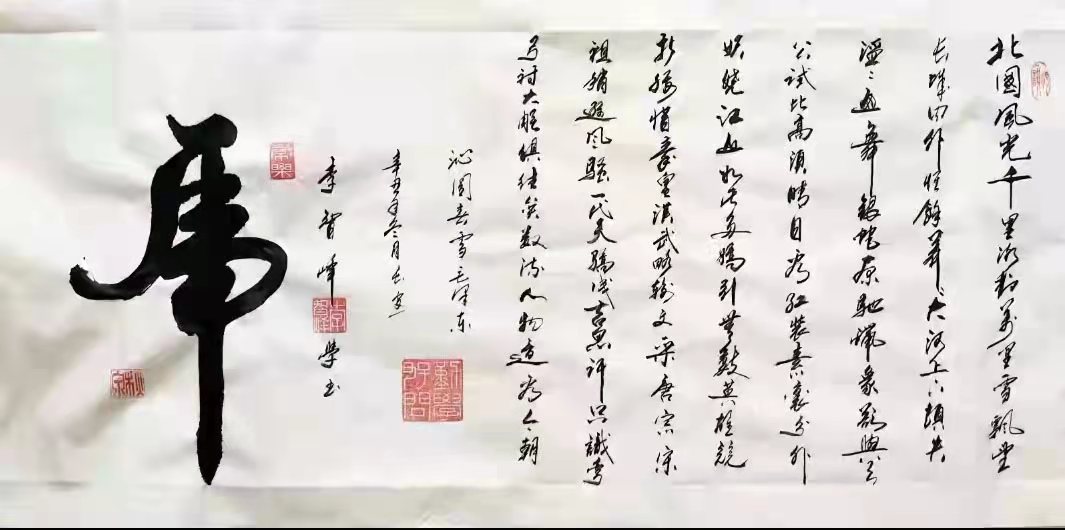 北國風光千里冰封万里雪飘望
长城内外惟餘莽〻大河上下顿失
滔〻山舞银蛇原驰蜡象欲與天
公试比高须晴日看红装素裹分外
妖娆江山如此多娇引无数英雄竞
折腰惜秦皇汉武略输文采唐宗宋
祖稍逊风骚一代天骄成吉思汗只识弯
弓射大雕俱往矣数风流人物还看今朝
沁园春雪毛泽东
辛丑年冬月
李智峰学书
李智峰
勤學好問
虎